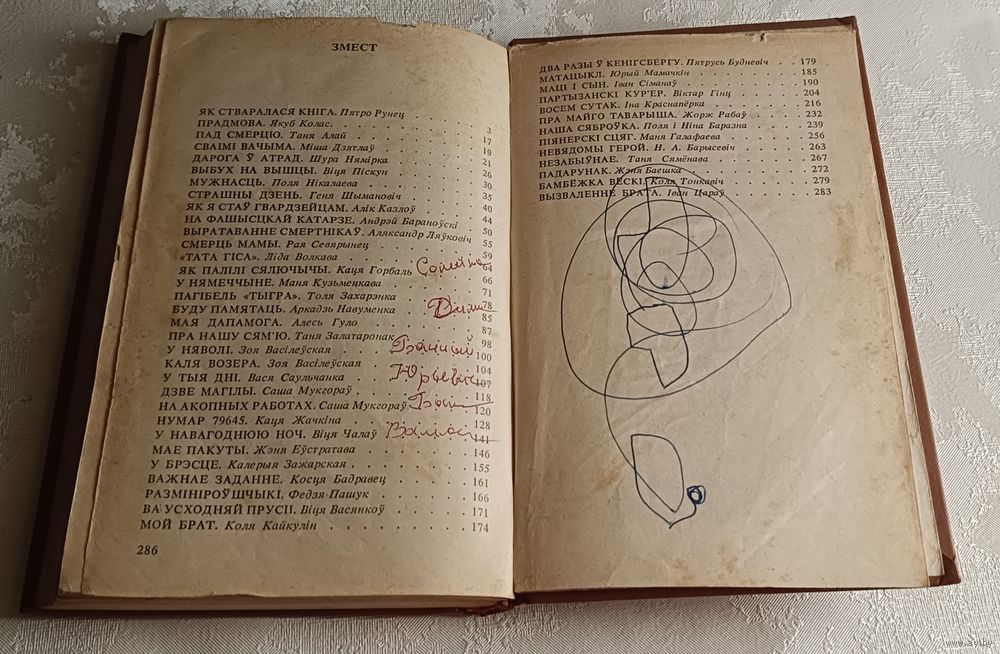 ЗМЕСТ
ЯК СТВАРАЛАСЯ КНІГА. Пятро Рунец
ПРАДМОВА. Якуб Колас. 3
ПАД СМЕРЦЮ. Таня Алай 17
СВАІМІ ВАЧЫМА. Міша Дзятлаў 19
ДАРОГА Ў АТРАД. Шура Нямірка 21
ВЫБУХ НА ВЫШЦЫ. Віця Піскун 26
МУЖНАСЦЬ. Поля Нікалаева 30
СТРАШНЫ ДЗЕНЬ. Геня Шымановіч 35
ЯК Я СТАЎ ГВАРДЗЕЙЦАМ. Алік Казлоў 40
НА ФАШЫСЦКАЙ КАТАРЗЕ. Андрэй Бараноўскі 44
ВЫРАТАВАННЕ СМЕРТНІКАЎ. Аляксандр Ляўковіч 50
СМЕРЦЬ МАМЫ. Рая Севярынец 55
«ТАТА ГІСА». Ліда Волкава 59
ЯК ПАЛІЛІ СЯЛЮЧЫЧЫ. Каця Горбаль 64
У НЯМЕЧЧЫНЕ. Маня Кузьмецкава 66
ПАГІБЕЛЬ «ТЫГРА». Толя Захарэнка 71
БУДУ ПАМЯТАЦЬ. Аркадзь Навуменка 78
МАЯ ДАПАМОГА. Алесь Гуло 85
ПРА НАШУ СЯМ'Ю. Таня Залатаронак 87
У НЯВОЛІ. Зоя Васілеўская 98
КАЛЯ ВОЗЕРА. Зоя Васілеўская 100
У ТЫЯ ДНІ. Вася Саульчанка 104
ДЗВЕ МАГІЛЫ. Саша Мукгораў 107
НА АКОПНЫХ РАБОТАХ. Саша Мукгораў 118
НУМАР 79645. Каця Жачкіна 120
У НАВАГОДНЮЮ НОЧ. Віця Чалаў 128
МАЕ ПАКУТЫ. Жэня Еўстратава 141
У БРЭСЦЕ. Калерыя Зажарская 146
ВАЖНАЕ ЗАДАННЕ. Косця Бадравец 155
РАЗМІНІРОЎШЧЫКІ. Федзя Пашук 161
ВА УСХОДНЯЙ ПРУСІІ. Віця Васянкоў 166
МОЙ БРАТ. Коля Кайкулін 171
174
286
ДВА РАЗЫ Ў КЕНІГСБЕРГУ. Пятрусь Будневіч 179
МАТАЦЫКЛ. Юрый Мамачкін 185
МАЦІ І СЫН. Іван Сіманаў 190
ПАРТЫЗАНСКІ КУР'ЕР. Віктар Гінц 204
ВОСЕМ СУТАК. Іна Краснапёрка 216
ПРА МАЙГО ТАВАРЫША. Жорж Рабаў 232
НАША СЯБРОЎКА. Поля і Ніна Баразна 239
ПІЯНЕРСКІ СЦЯГ. Маня Галафаева 256
НЕВЯДОМЫ ГЕРОЙ. Н. А. Барысевіч 263
НЕЗАБЫЎНАЕ. Таня Сямёнава 267
ПАДАРУНАК. Жэня Баешка 272
БАМБЁЖКА ВЁСКІ. Коля Тонкавіч 279
ВЫЗВАЛЕННЕ БРАТА. Іван Цараў 283
www.ay.by